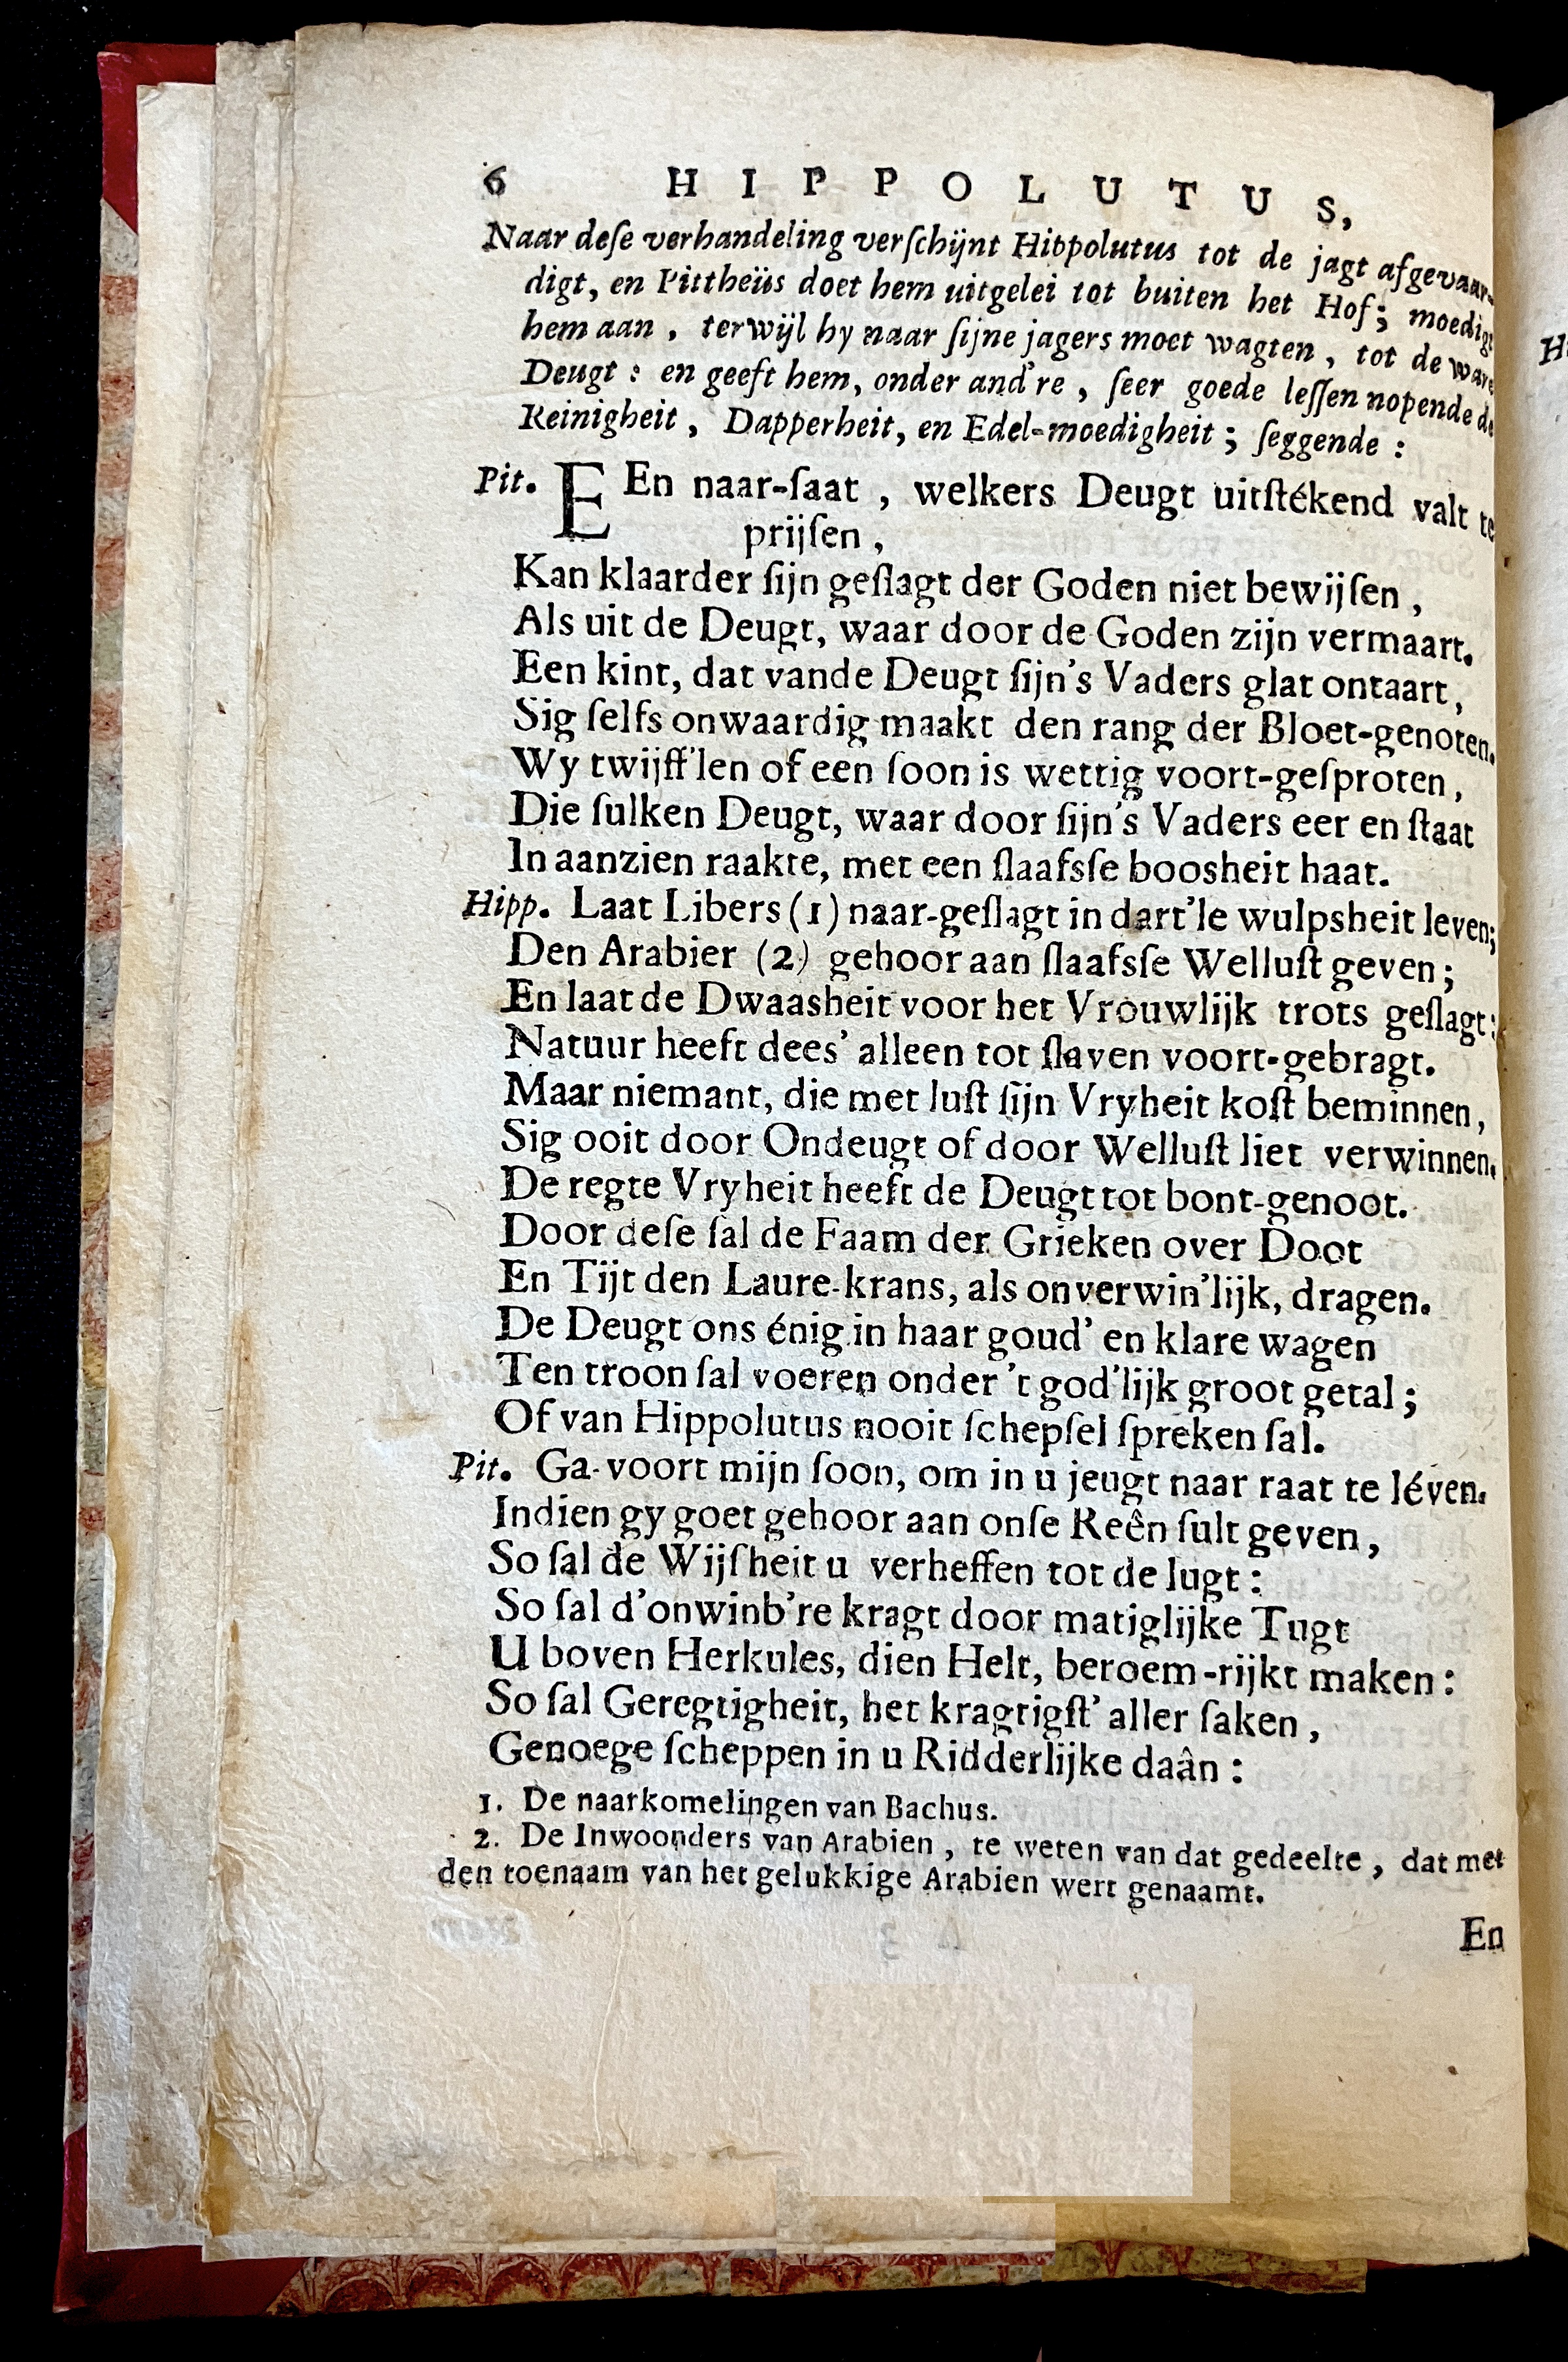 6 HIPPOLUTUS,
Naar deſe verhandeling verſchijnt Hippolutus tot de jagt afgevaar-
digt, en Pittheüs doet hem uitgelei tot buiten het Hof; moedigt
hem aan, terwijl hy naar ſijne jagers moet wagten, tot de ware
Deugt: en geeft hem, onder and're, ſeer goede leſſen nopende de
Reinigheit, Dapperheit, en Edel-moedigheit; ſeggende:
Pit. EEn naar-ſaat, welkers Deugt uitſtékend valt te
prijſen,
Kan klaarder ſijn geſlagt der Goden niet bewijſen,
Als uit de Deugt, waar door de Goden zijn vermaart.
Een kint, dat vande Deugt ſijn's Vaders glat ontaart,
Sig ſelfs onwaardig maakt den rang der Bloet-genoten.
Wy twijff'len of een ſoon is wettig voort-geſproten,
Die ſulken Deugt, waar door ſijn's Vaders eer en ſtaat
In aanzien raakte, met een ſlaafsſe boosheit haat.
Hipp. Laat Libers (1) naar-geſlagt in dart'le wulpsheit leven;
Den Arabier (2) gehoor aan ſlaafsſe Welluſt geven;
En laat de Dwaasheit voor het Vrouwlijk trots geſlagt:
Natuur heeft dees' alleen tot ſlaven voort-gebragt.
Maar niemant, die met luſt ſijn Vryheit koſt beminnen,
Sig ooit door Ondeugt of door Welluſt liet verwinnen.
De regte Vryheit heeft de Deugt tot bont-genoot.
Door deſe ſal de Faam der Grieken over Doot
En Tijt den Laure-krans, als onverwin'lijk, dragen.
De Deugt ons énig in haar goud' en klare wagen
Ten troon ſal voeren onder 't god'lijk groot getal;
Of van Hippolutus nooit ſchepſel ſpreken ſal.
Pit. Ga voort mijn ſoon, om in u jeugt naar raat te léven.
Indien gy goet gehoor aan onſe Reên ſult geven,
So ſal de Wijſheit u verheffen tot de lugt:
So ſal d'onwinb're kragt door matiglijke Tugt
U boven Herkules, dien Helt, beroem-rijkt maken:
So ſal Geregtigheit, het kragtigſt' aller ſaken,
Genoege ſcheppen in u Ridderlijke daân:
1. De naarkomelingen van Bachus.
2. De Inwoonders van Arabien, te weten van dat gedeelte, dat met
den toenaam van het gelukkige Arabien wert genaamt.
En